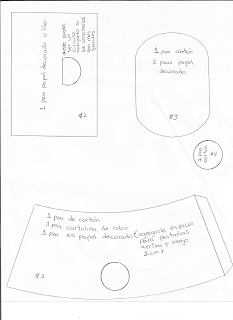 1 pza papel decorado o liso
#2
1 pza cartón
2 pza papel
decorado
#3
1 pza
cartón
#4
1 pza de cartón
1 pza cartulina de color
1 pza en papel decorado (agregarle espacio
para pestañas
arriba y abajo
1cm)
#1